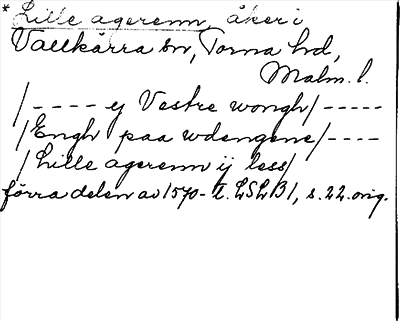 *Lille agerenn, åker i
Vallkärra sn, Torna hd,
Malm. l.
/ - - - - ej Vestre wongh / - - - - -
/ Engh paa wdengene / - - - -
/ Lille agerenn ij less /
förra delen av 1570-t. LSLB1, s. 22. orig.